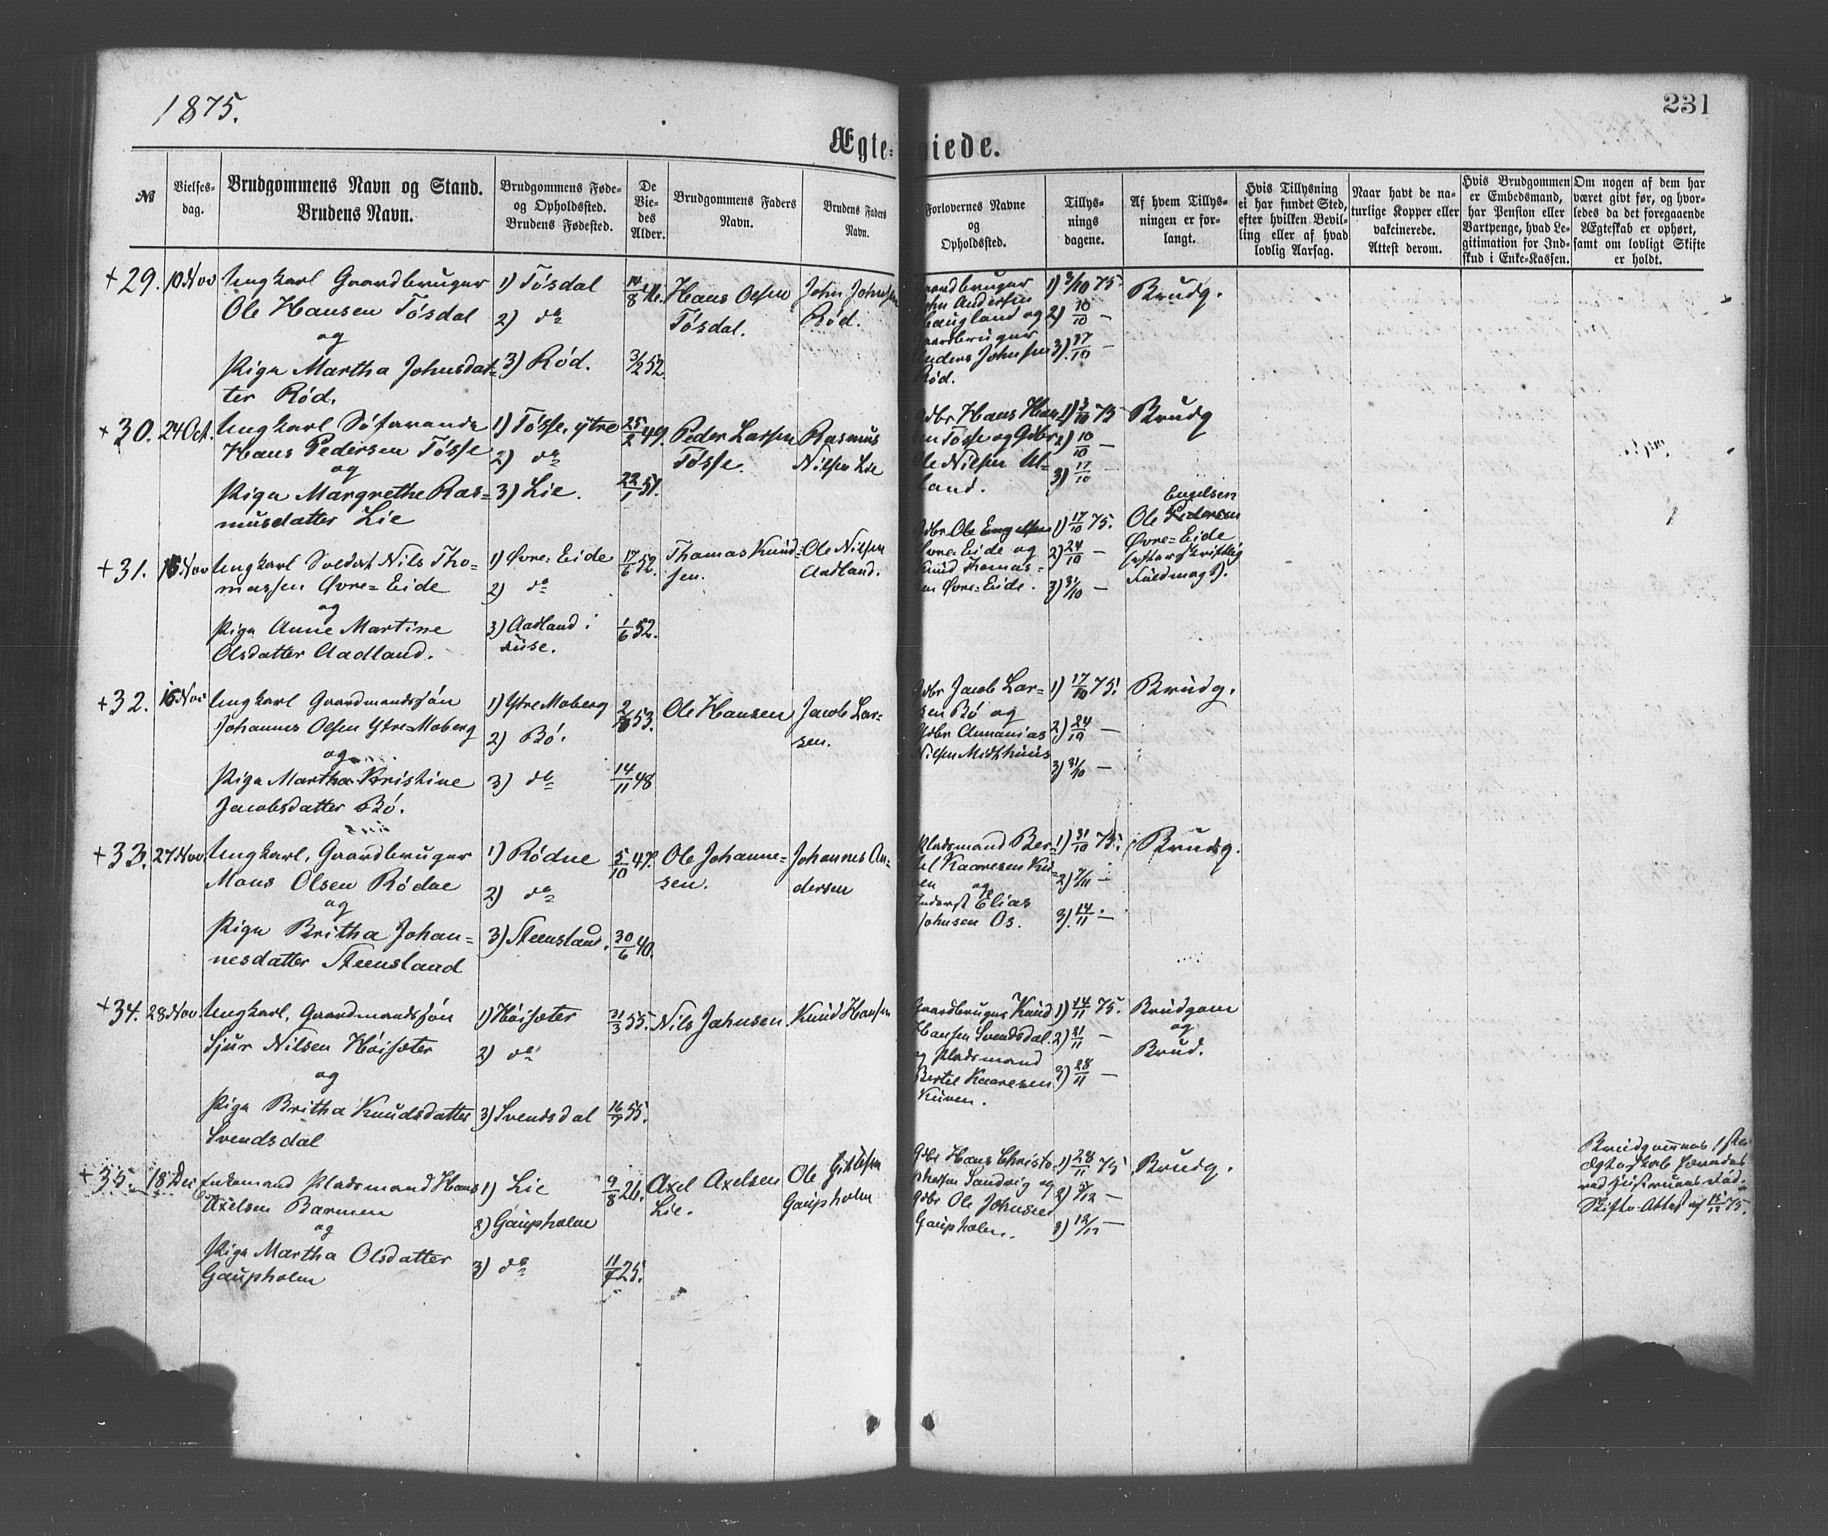 1875.
231
Ægte=
viede.
№
Vielses-
dag.
Brudgommens Navn og Stand.
Brudens Navn.
Brudgommens Føde-
og Opholdssted.
Brudens Fødested.
De
Vie-
des
Alder.
Brudgommens Faders
Navn.
Brudens Faders
Navn.
Forlovernes Navne
og
Opholdssted.
Tillys-
nings
dagene.
Af hvem Tillys-
ningen er for-
langt.
Hvis Tillysning
ei har fundet Sted,
efter hvilken Bevil-
ling eller af hvad
lovlig Aarsag.
Naar havt de na-
turlige Kopper eller
vakcinerede.
Attest derom.
Hvis Brudgommen
er Embedsmand,
har Pension eller
Vartpenge, hvad Le-
gitimation for Ind-
skud i Enke-Kassen.
Om nogen af dem har
været givt før, og hvor-
ledes da det foregaaende
Ægteskab er ophørt,
samt om lovligt Skifte
er holdt.
+29. 10 Nov
Ungkarl Gaardbruger
Ole Hansen Tøsdal
og
Pige Martha Johnsdat-
ter Rød.
1) Tøsdal
2) do
3) Rød.
14/8 46.
3/2 52.
Hans Olsen
Tøsdal.
John Johnsen
Rød.
Gaardbruger
John Andersen
Haugland og
Gaardbruger
Anders Johnsen
Rød.
1) 3/10 75.
2) 10/10 —
3) 17/10 —
Brudg.
+30. 24 Oct.
Ungkarl Søfarende
Hans Pedersen Tøsse
og
Pige Margrethe Ras-
musdatter Lie
1) Tøsse, ytre
2) do
3) Lie.
25/2 49.
22/1 51.
Peder Larsen
Tøsse.
Rasmus
Nilsen Lie
Gdbr. Hans Han-
sen Tøsse og Gdbr
Ole Nilsen Ul-
land.
1) 3/10 75
2) 10/10 —
3) 17/10
Brudg
+31. Nov
Ungkarl Soldat Nils Tho-
massen Øvre=Eide
og
Pige Anne Martine
Olsdatter Aadland.
1) Øvre=Eide
2) do
3) Aadland i
Fuse.
17/6 52.
1/6 52.
Thomas Knud-
sen.
Ole Nilsen
Aadland.
Gdbr Ole Engelsen
Øvre=Eide og
Knud Thomas-
sen Øvre=Eide.
1) 17/10 75.
2) 24/10 —
3) 31/10 —
Engelsen
Ole Pedersen
Øvre=Eide
(efter skriftlig
Fuldmagt).
+32. Nov
Ungkarl Gaardmandssøn
Johannes Olsen Ytre=Moberg
og
Pige Martha Kristine
Jacobsdatter Bø.
1) Ytre Moberg
2) Bø.
3) do
53.
14/11 48
Ole Hansen
Jacob Lar-
sen.
Gdbr Jacob Lar-
sen Bø og
Gdbr Annanias
Nilsen Midthuus
1) 17/10 75.
2) 24/10 —
3) 31/10 —
Brudg.
+33. 27 Nov.
Ungkarl, Gaardbruger
Mons Olsen Rødne
og
Pige Britha Johan-
nesdatter Steensland
1) Rødne
2) do
3) Steensland.
5/10 47.
30/6 40.
Ole Johanne-
sen.
Johannes An-
dersen
Pladsmand Ber-
tel Kaaresen Ku-
ven og
Inderst Elias
Johnsen Os.
1) 31/10 75.
2) 7/11 —
3) 14/11 —
Brudg.
+34. 28 Nov.
Ungkarl, Gaardmandssøn
Sjur Nilsen Høisæter
og
Pige Britha Knudsdatter
Svendsdal
1) Høisæter
2) do
3) Svendsdal
31/3 55.
16/7 55.
Nils Johnsen
Knud Hansen
Gaardbruger Knud
Hansen Svendsdal
og Pladsmand
Bertel Kaaresen
Kuven.
1) 14/11 75.
2) 21/11 —
3) 28/11 —
Brudgom
og
Brud.
+35. 18 Dec
Enkemand Pladsmand Hans
Axelsen Barmen
og
Pige Martha Olsdatter
Gaupholm
1) Lie
2) Gaupholm
3) do
9/8 26.
11/7 25.
Axel Axelsen
Lie.
Ole
Gaupholm
Gdbr Hans Christo-
phersen Sandvig og
Gdbr Ole Johnsen
Gaupholm.
1) 28/11 75
2) 5/12 —
3) 12/12 —
Brudg.
Brudgommens 1ste
Ægteskab hævedes
ved Hustruens Død.
Skifte-Attest af 75.